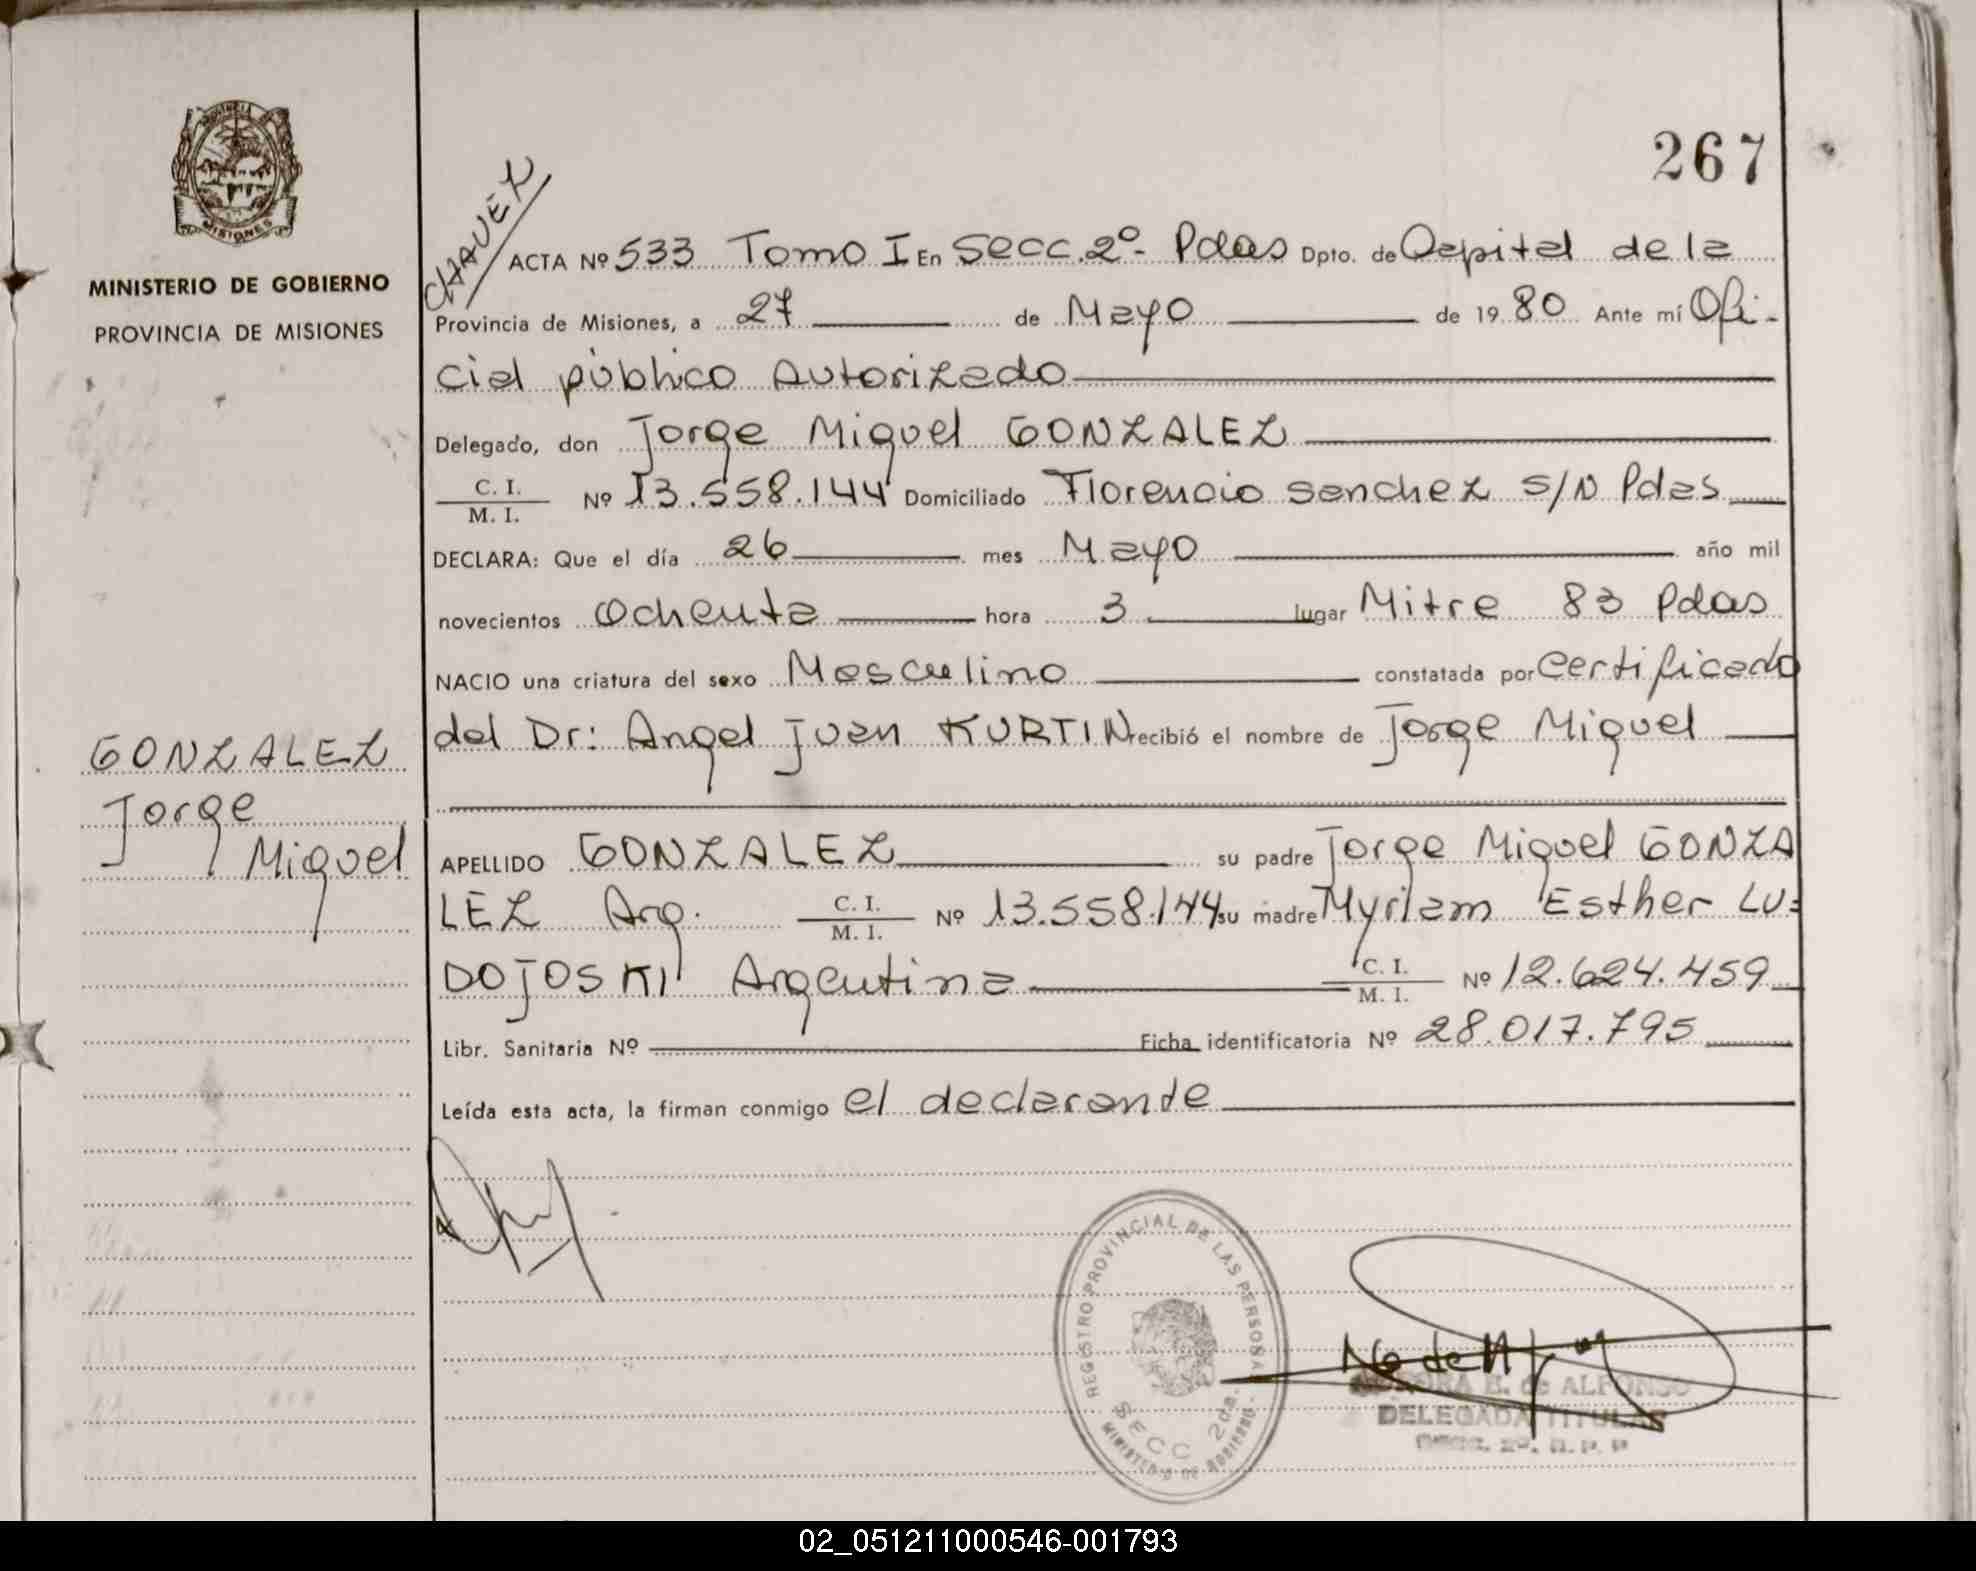 267
MISIONES
MINISTERIO DE GOBIERNO
PROVINCIA DE MISIONES
CHAVEZ
ACTA Nº 533 Tomo I En Secc. 2º- Pdas Dpto. de Capital de la
Provincia de Misiones, a 27 de Mayo de 1980 Ante mí Ofi-
cial público Autorizado
Delegado, don Jorge Miguel GONZALEZ
C. I.
M. I. Nº 13.558.144 Domiciliado Florencio Sanchez S/N Pdas
DECLARA: Que el día 26 mes Mayo año mil
novecientos ochenta hora 3 lugar Mitre 83 Pdas
NACIO una criatura del sexo Masculino constatada por certificado
del Dr: Angel Juan KURTIN recibió el nombre de Jorge Miguel
GONZALEZ
Jorge
Miguel
APELLIDO GONZALEZ su padre Jorge Miguel GONZA
LEZ Arg. C. I.
M. I. Nº 13.558.144 su madre Myriam Esther LU=
DOJOSKI Argentina C. I.
M. I. Nº 12.624.459
Libr. Sanitaria Nº Ficha identificatoria Nº 28.017.795
Leída esta acta, la firman conmigo el declarante
REGISTRO PROVINCIAL DE LAS PERSONAS
SECC 2da.
MINISTERIO DE GOBIERNO
E. de ALFONSO
DELEGADA TITULAR
SECC. 2º. R. P. P
02_051211000546-001793